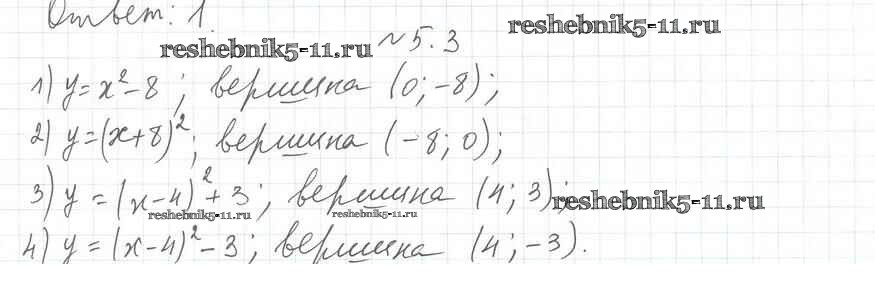 Ответ: 1.
reshebnik5-11.ru
reshebnik5-11.ru № 5.3
1) y = x² - 8 ; вершина (0; -8);
2) y = (x+8)² ; вершина (-8; 0);
3) y = (x-4)² + 3 ; вершина (4; 3);
reshebnik5-11.ru
reshebnik5-11.ru reshebnik5-11.ru
4) y = (x-4)² - 3 ; вершина (4; -3).